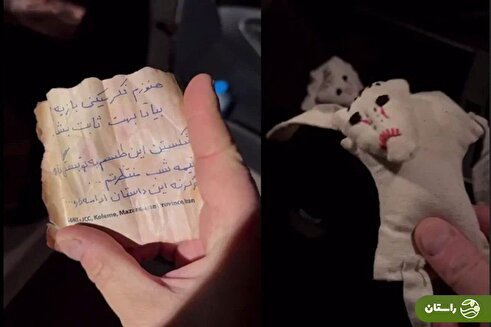 هنوزم فکر میکنی بازیه
بیا تا بهت ثابت بشه
شکستن این طلسم به تو بستگی
نیمه شب منتظرتم...
وگرنه این داستان ادامه داره...
JCC, Koleme, Mazandaran Province, Iran
راستان